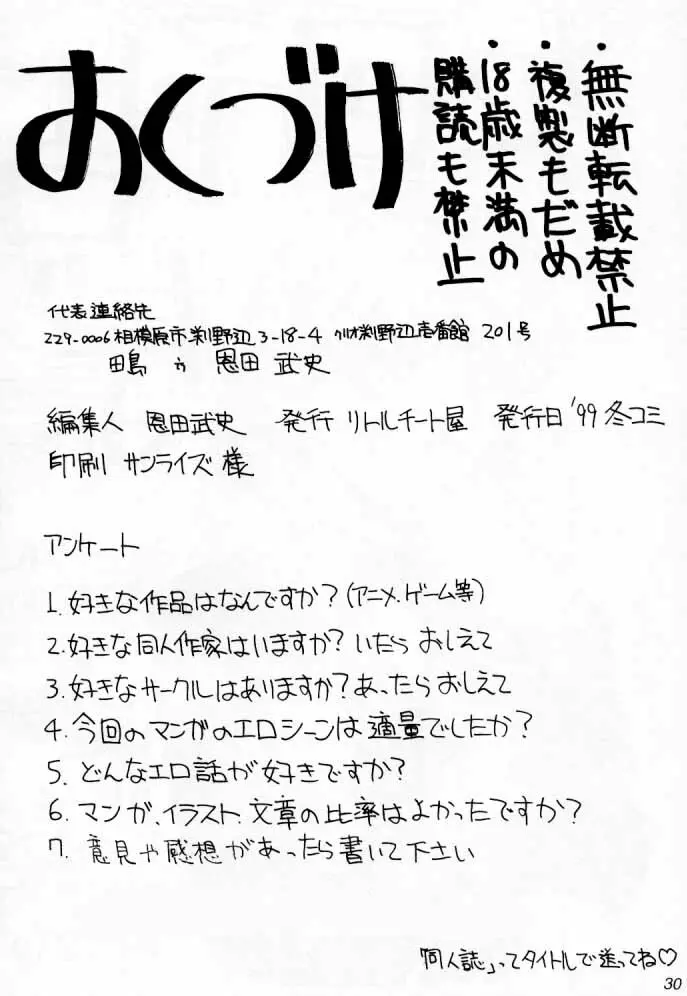 おくづけ
・無断転載禁止
・複製もだめ
・18歳未満の
購読も禁止
代表連絡先
229-0006 相模原市淵野辺3-18-4 クリオ淵野辺壱番館 201号
田島 方 恩田 武史
編集人 恩田武史 発行 リトルチート屋 発行日 '99冬コミ
印刷 サンライズ様
アンケート
1. 好きな作品はなんですか?(アニメ、ゲーム等)
2. 好きな同人作家はいますか? いたら おしえて
3. 好きなサークルはありますか? あったら おしえて
4. 今回のマンガのエロシーンは適量でしたか?
5. どんなエロ話が好きですか?
6. マンガ、イラスト、文章の比率はよかったですか?
7. 意見や感想があったら書いて下さい
「同人誌」ってタイトルで送ってね♡
30